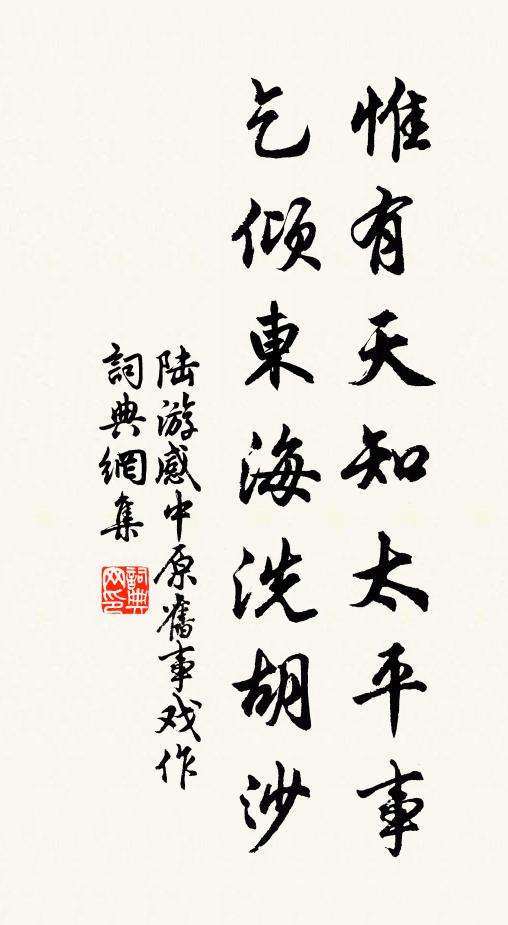 惟有天知太平事
乞倾東海洗胡沙
陆游感中原舊事戏作
詞典網集
詞典网印